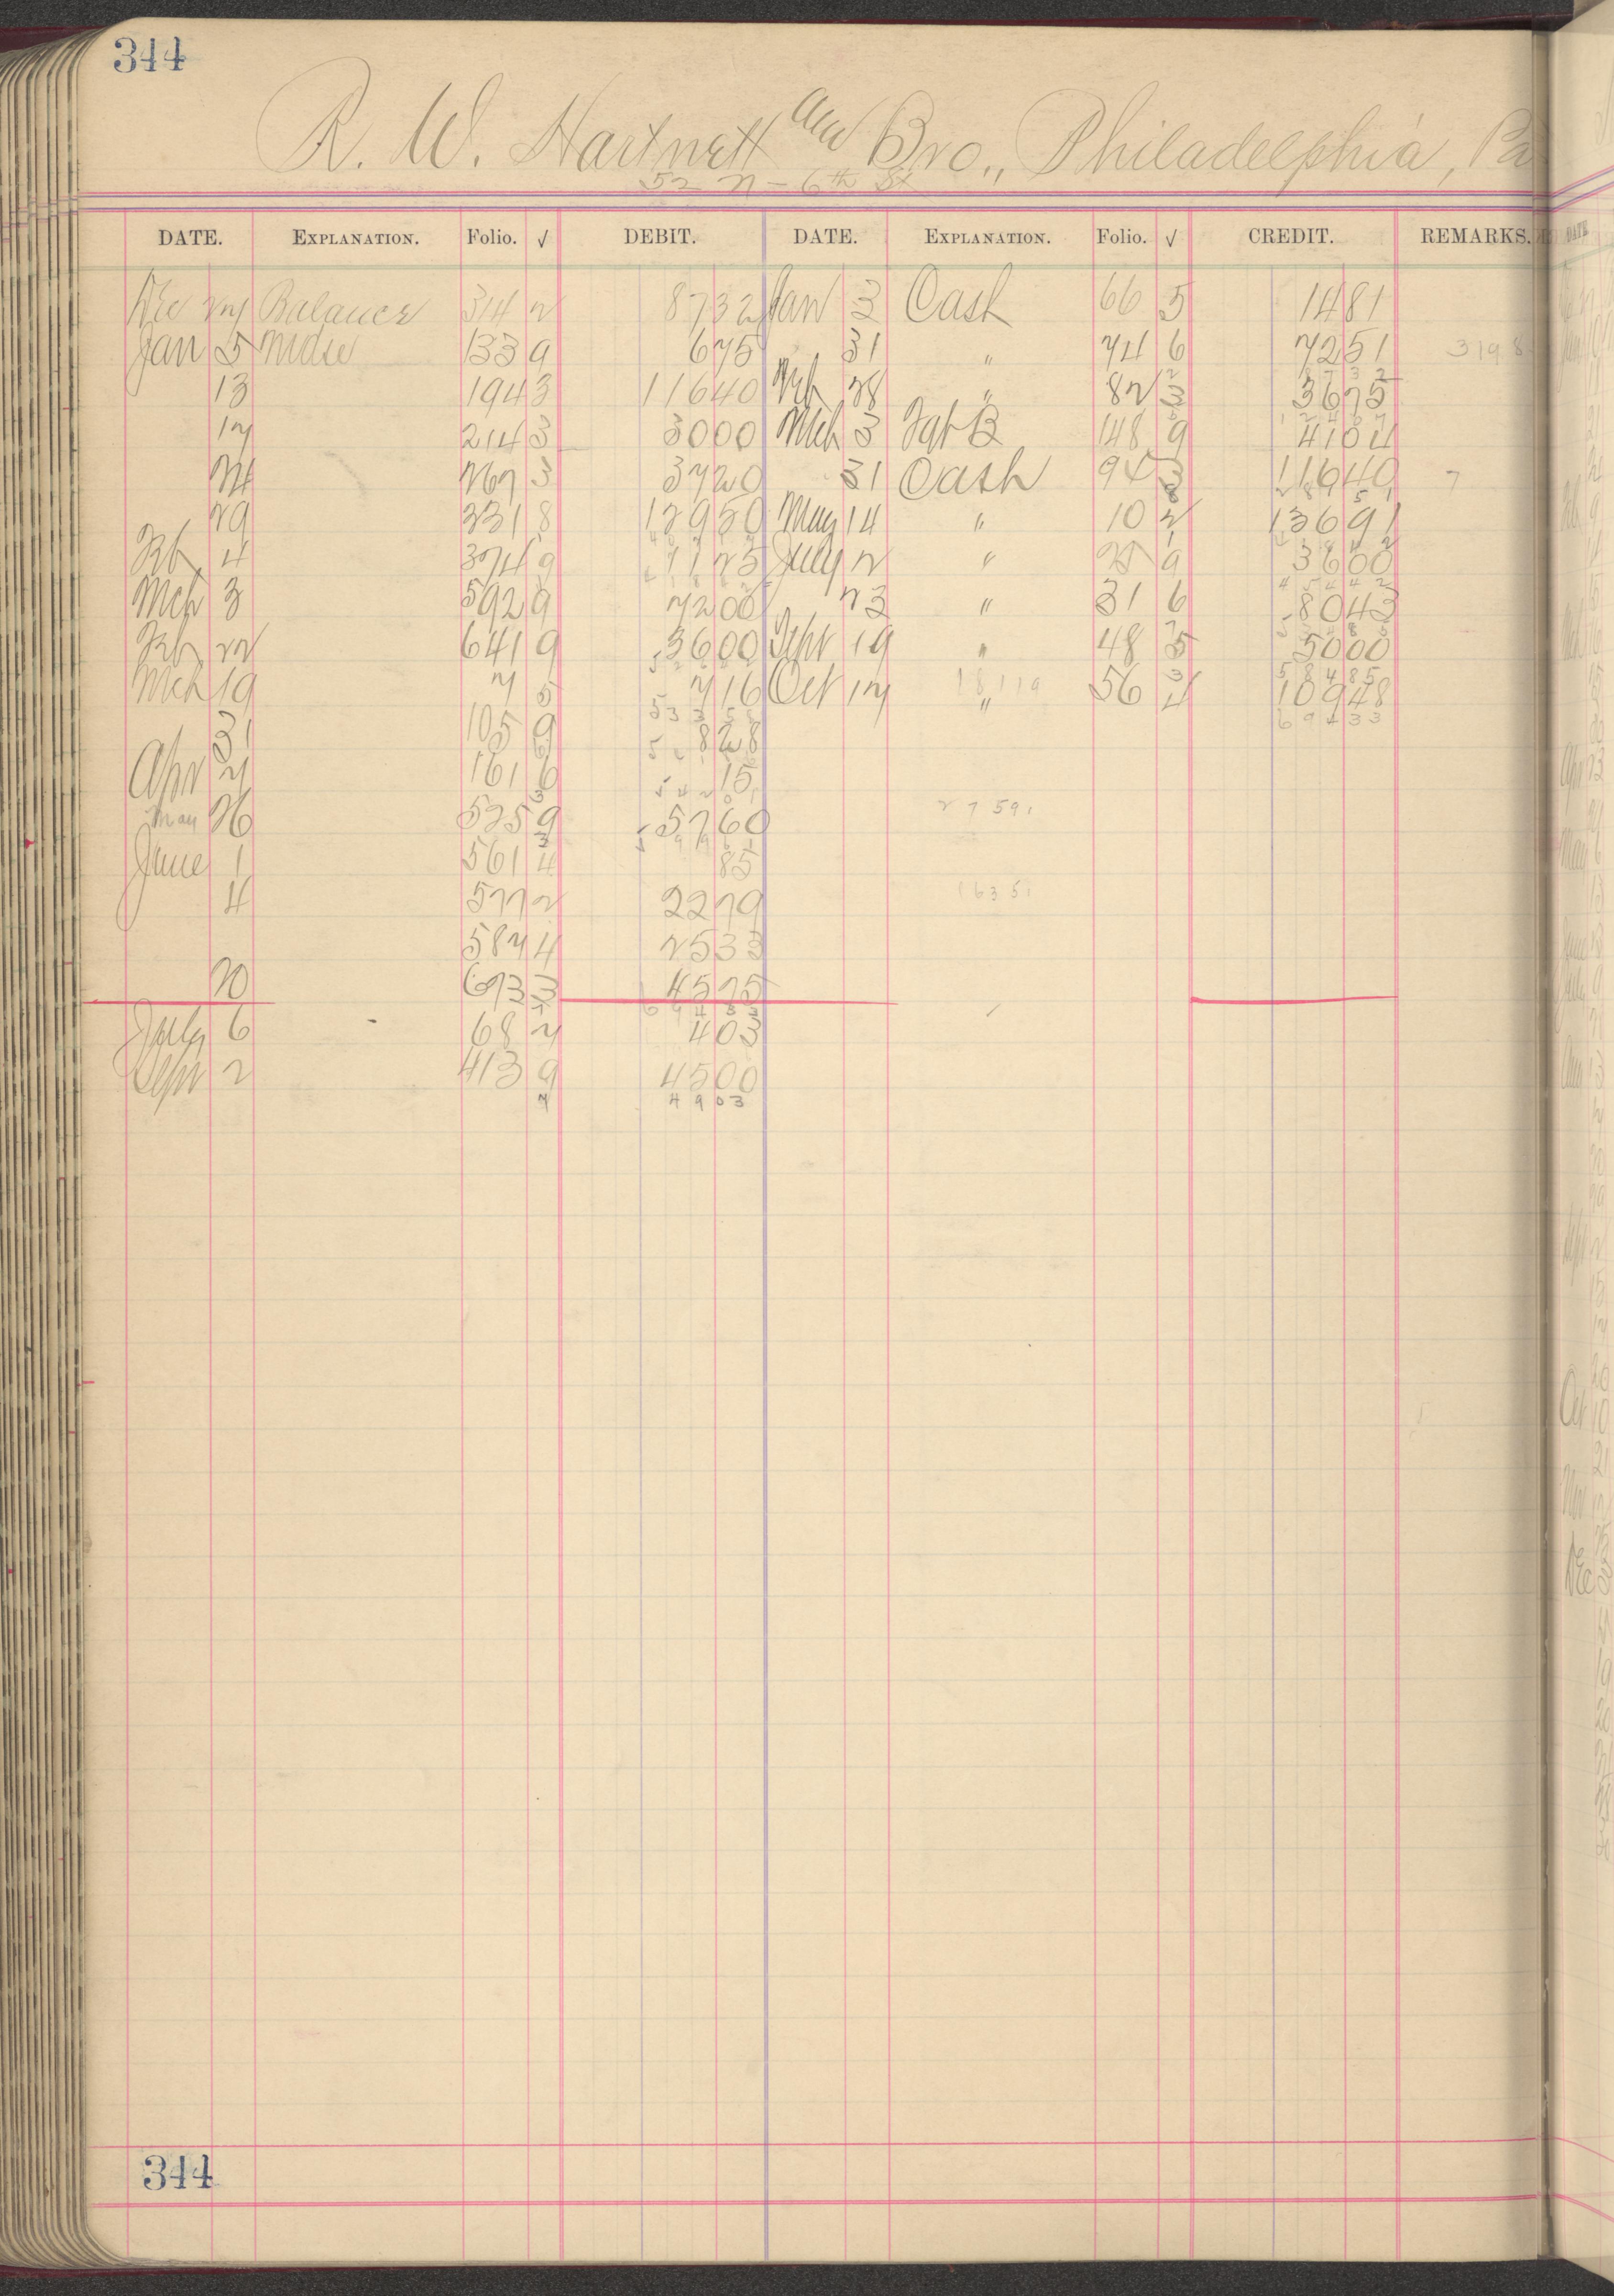 344
R. W. Hartnett and Bro., Philadelphia, Pa
52 N - 6th St
DATE. EXPLANATION. Folio. √ DEBIT. DATE. EXPLANATION. Folio. √ CREDIT. REMARKS.
Dec 27 Balance 314 2 8732 Jan 3 Cash 66 5 1481
Jan 5 Mdse 133 9 675 31 " 74 6 7251 3198
13 194 3 11640 Feb 28 " 82 3 3675
17 214 3 3000 Mch 3 Fgt B 148 9 4104
24 267 3 3720 31 Cash 94 3 11940
29 331 8 12950 May 14 " 10 2 13691
Feb 4 374 9 1125 July 2 " 25 9 3600
Mch 3 592 9 7200 23 " 31 6 8043
Feb 22 641 9 3600 Sept 19 " 48 5 5000
Mch 19 7 5 716 Oct 17 " 56 4 10948
31 105 9 828 69433
Apr 21 161 6 15
May 26 525 9 5760 2759
June 1 561 4 85
4 577 2 2279 16351
587 4 2533
20 673 3 4575
July 6 68 7 403
Sept 2 413 9 4500
4903
344